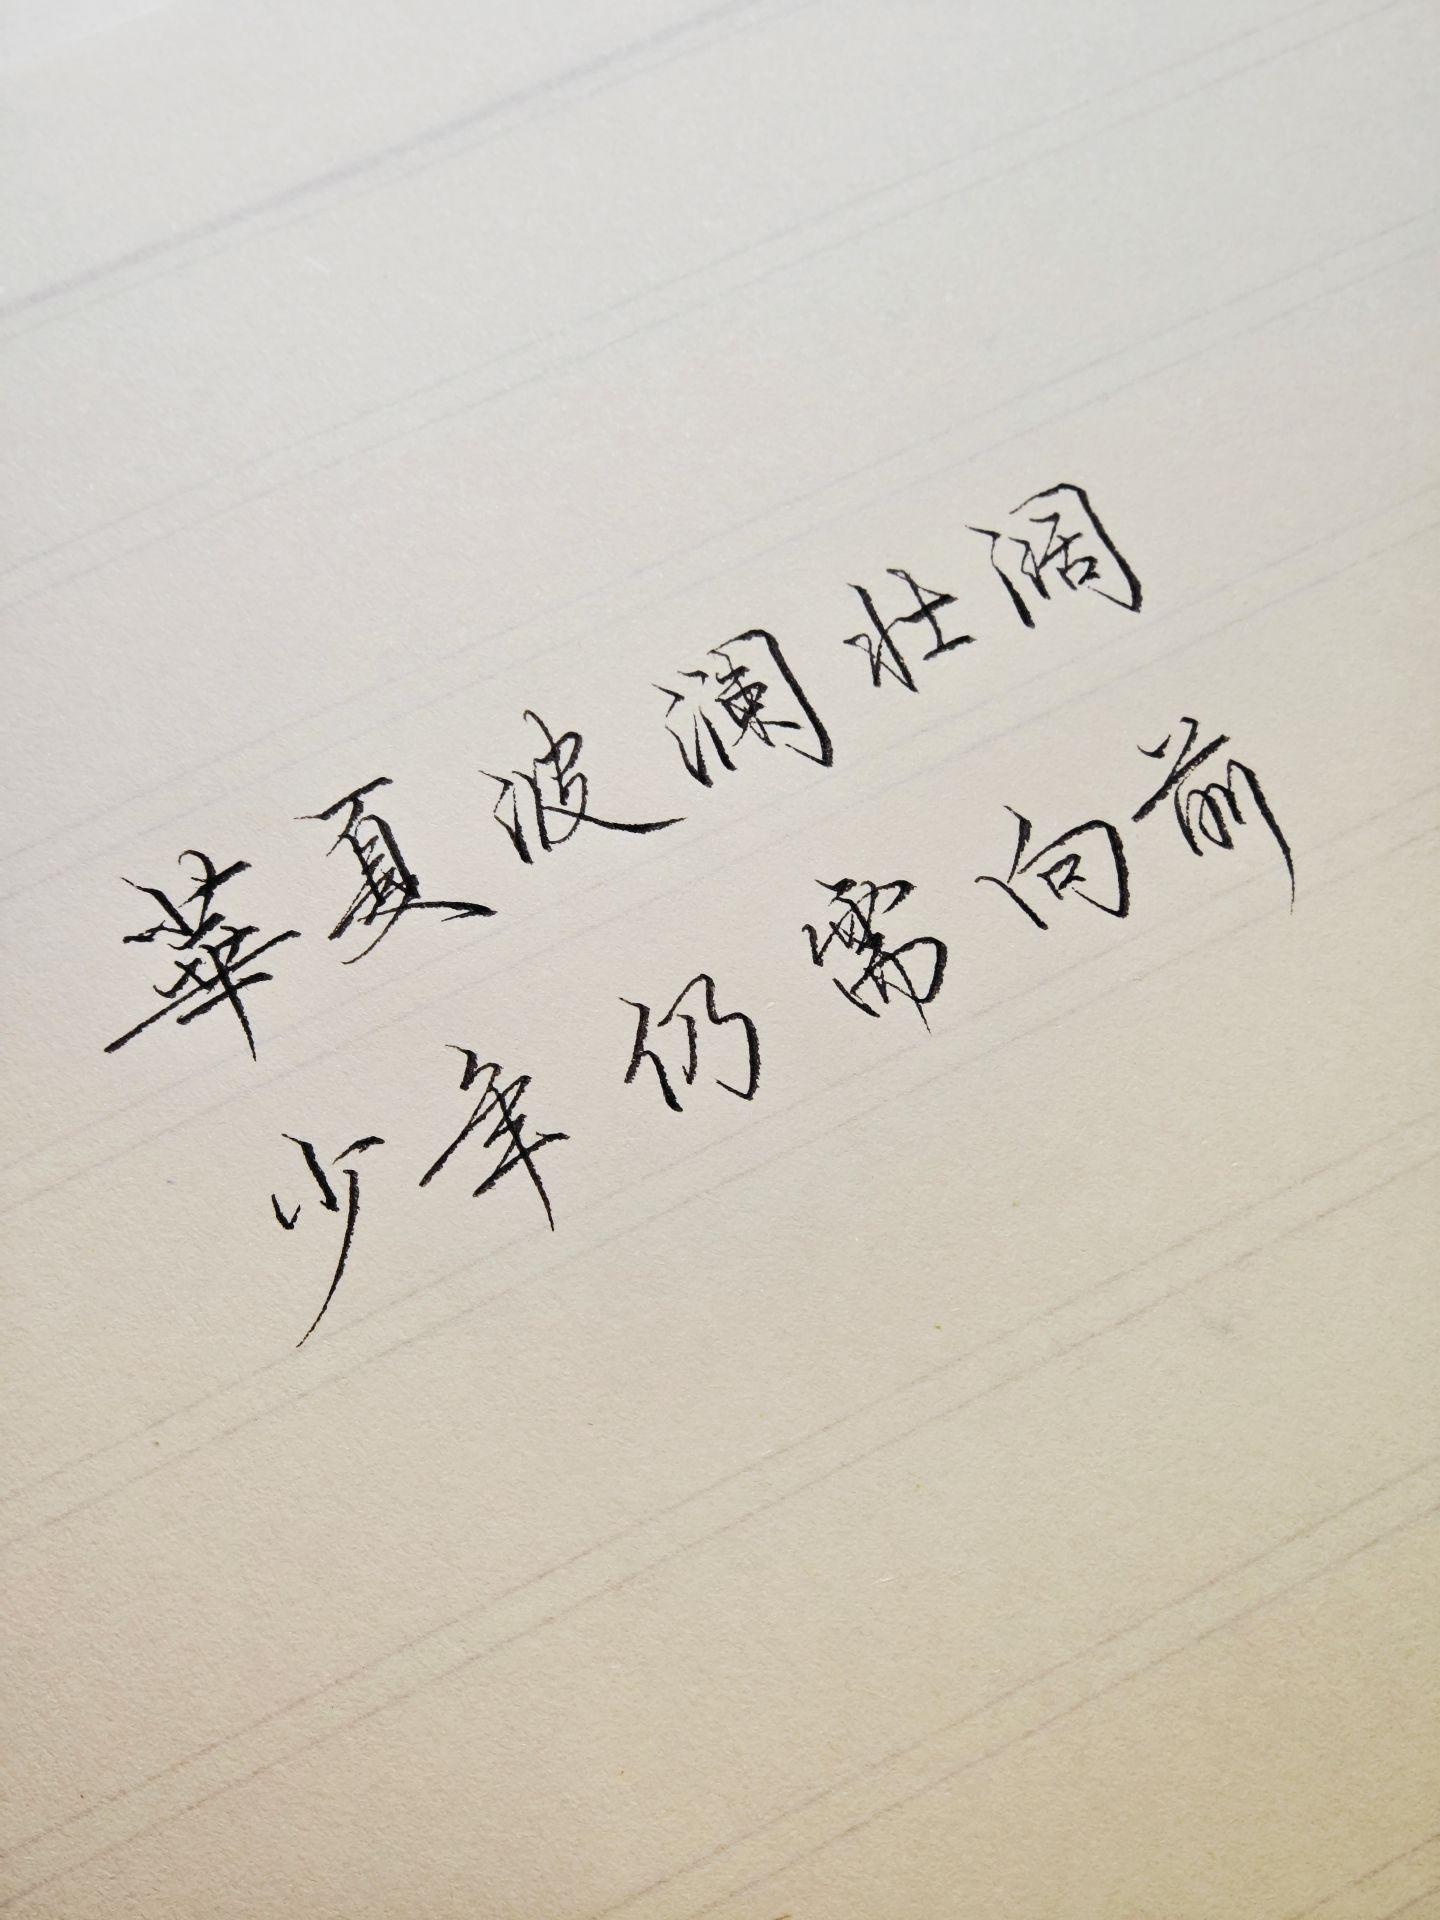 華夏波澜壮阔
少年仍需向前